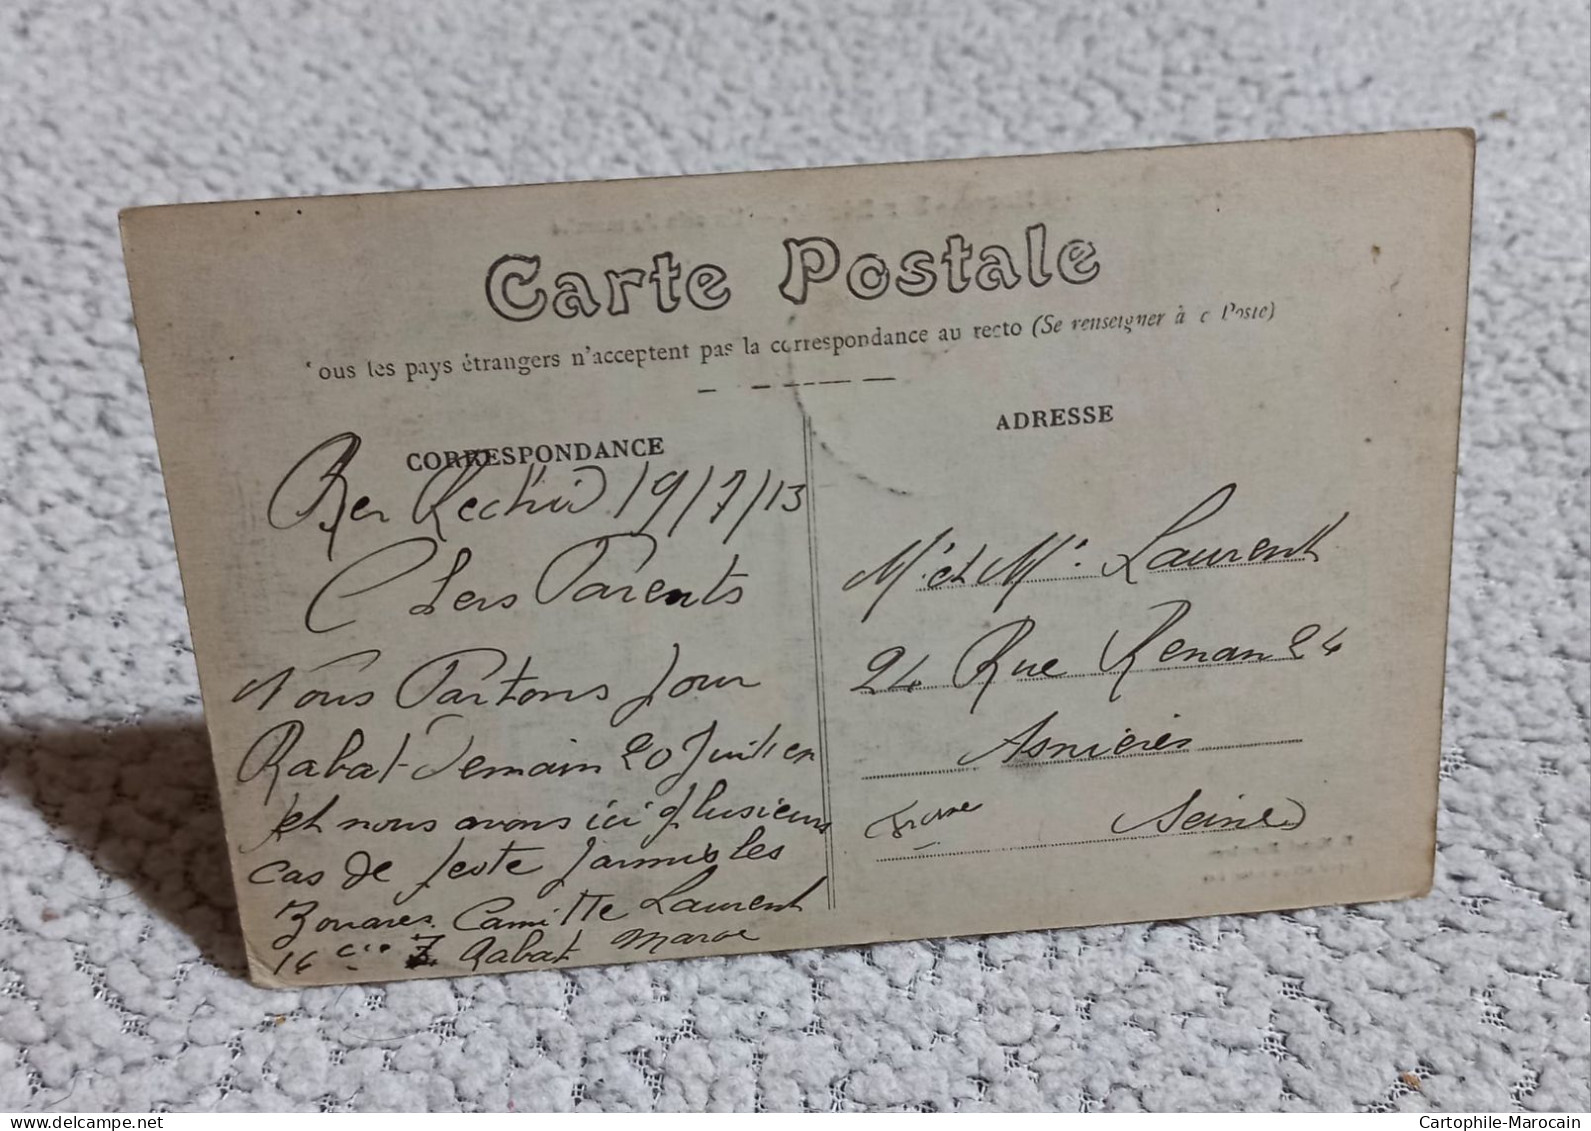 Carte Postale
ous les pays étrangers n'acceptent pas la correspondance au recto (Se renseigner à Poste)
CORRESPONDANCE
Ber Rechid 19/7/13
Chers Parents
Nous Partons pour
Rabat Demain 20 Juillet
et nous avons ici plusieurs
cas de peste parmis les
Zouaves. Camille Laurent
14 Cie Z Rabat Maroc
ADRESSE
Mr et Me Laurent
24 Rue Renan 24
Asnieres
France Seine
Cartophile-Marocain
delcampe.net